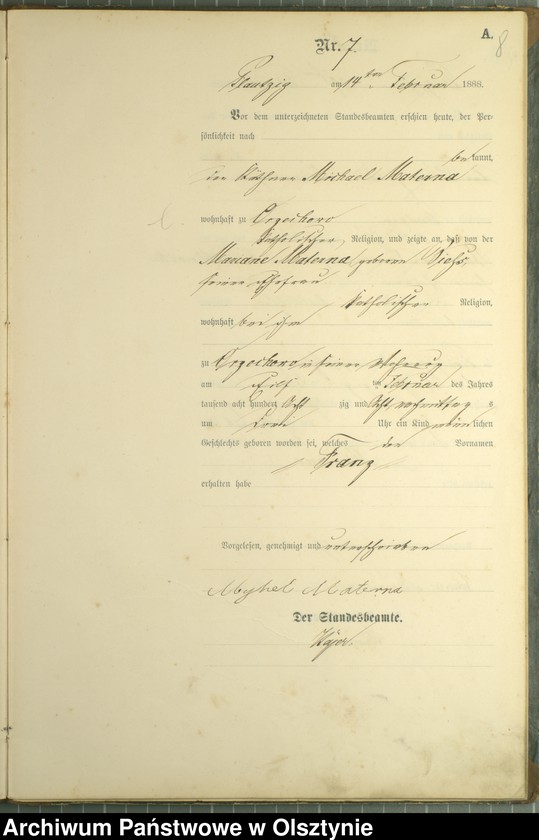 A.
8
Nr. 7
Plautzig am 14ten Februar 1888.
Vor dem unterzeichneten Standesbeamten erschien heute, der Per-
sönlichkeit nach
bekannt,
der Käthner Michael Materna
wohnhaft zu Orzechowo
katholischer Religion, und zeigte an, daß von der
Marianne Materna geborene
seiner Ehefrau
katholischer Religion,
wohnhaft bei ihm
zu Orzechowo in seiner Wohnung
am elf ten Februar des Jahres
tausend acht hundert acht zig und acht vormittag s
um Uhr ein Kind männlichen
Geschlechts geboren worden sei, welches den Vornamen
Franz
erhalten habe
Vorgelesen, genehmigt und unterschrieben
Myhel Materna
Der Standesbeamte.
Archiwum Państwowe w Olsztynie